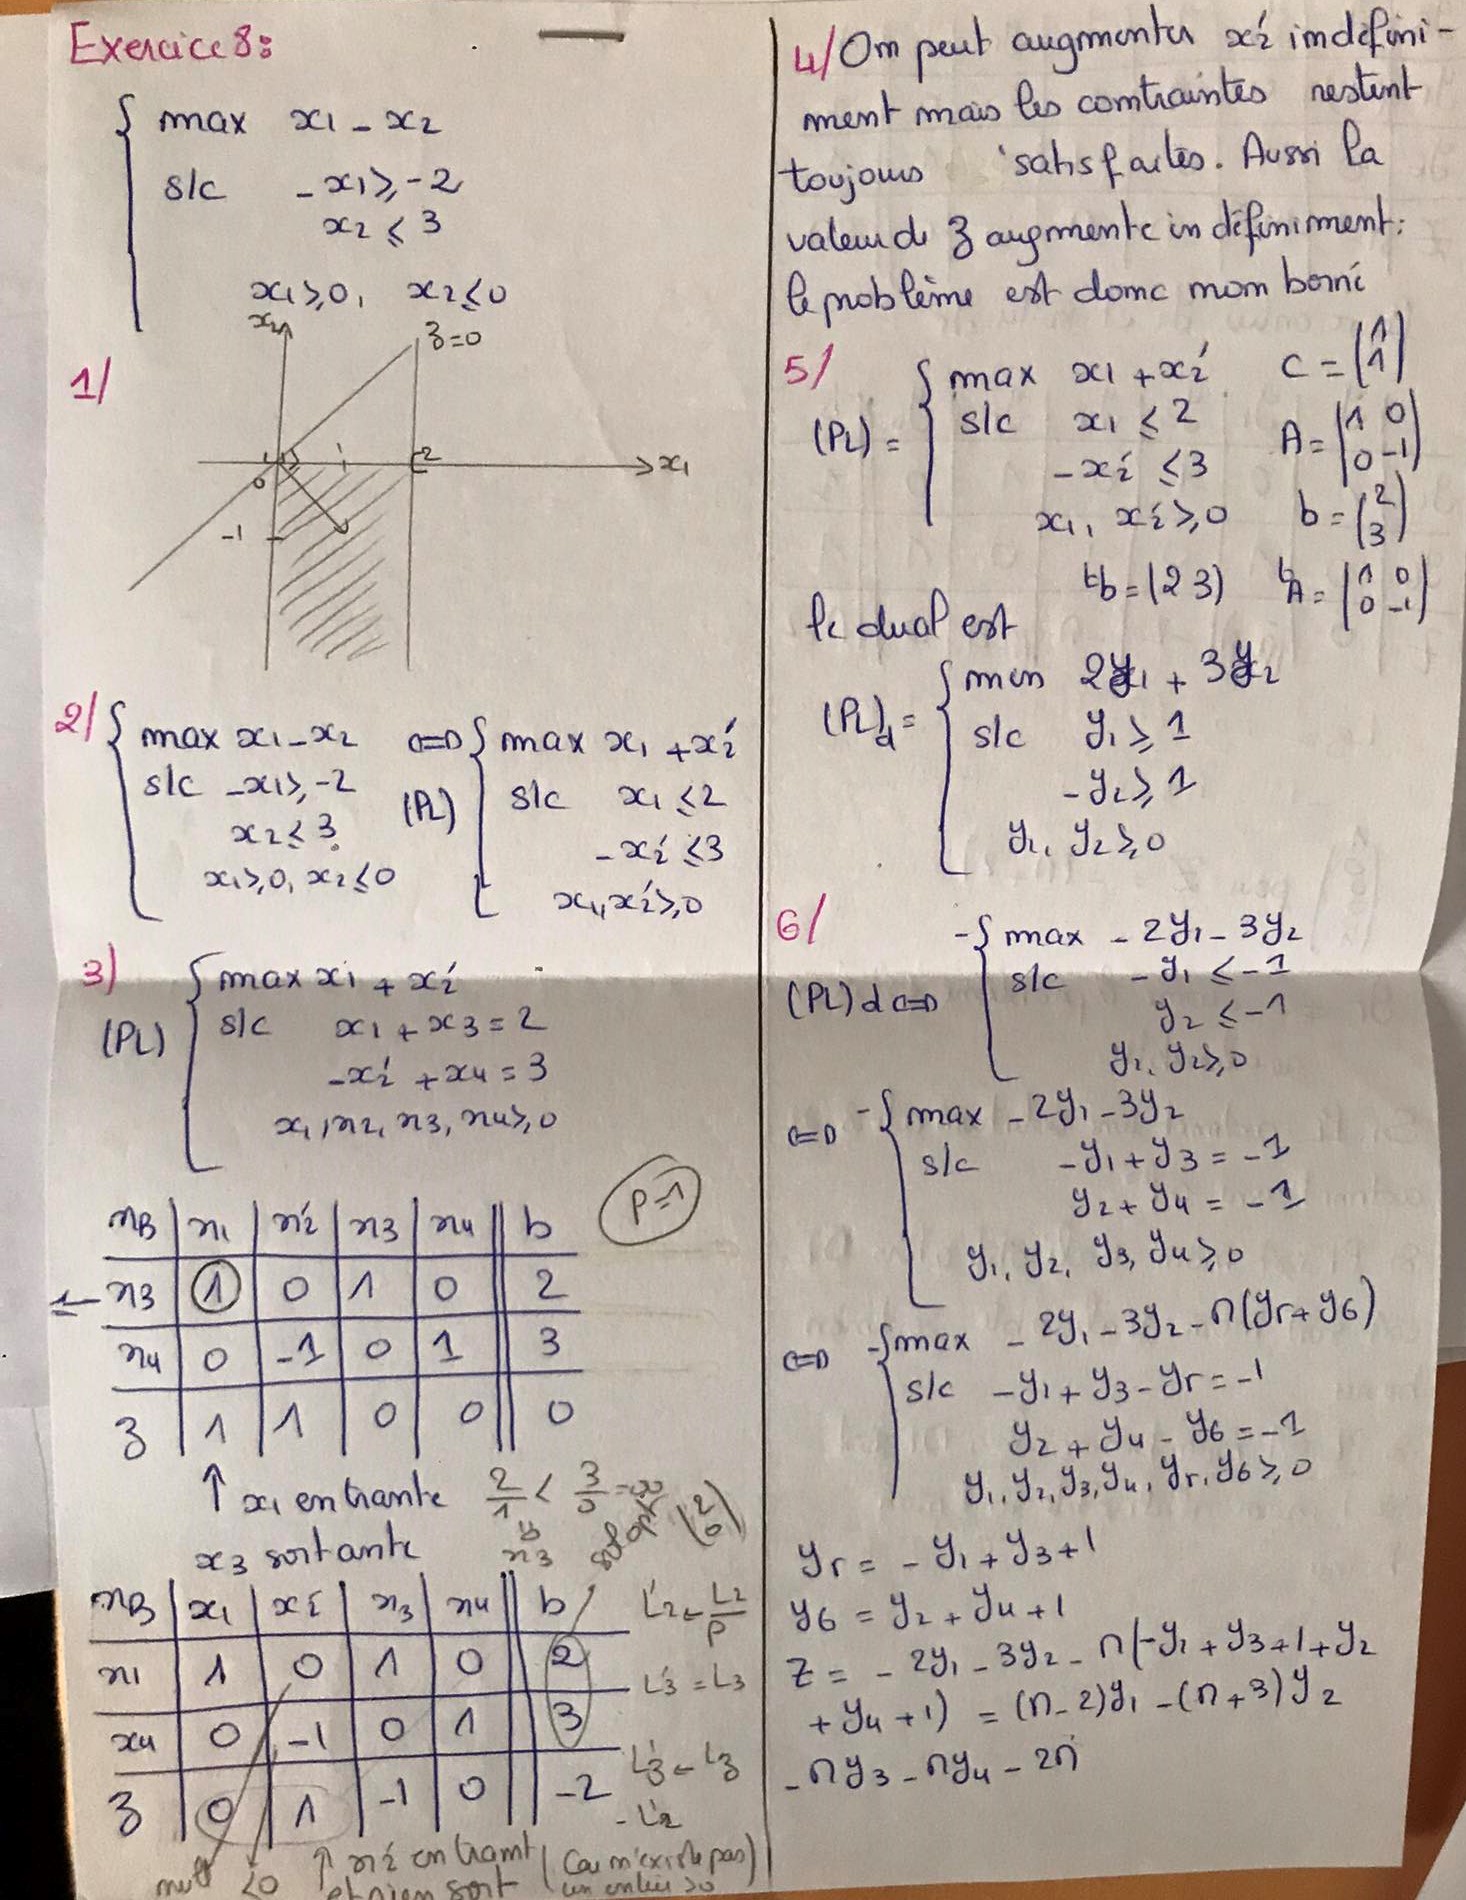 Exercice 8:
max x1 - x2
s/c -x1 ≥ -2
x2 ≤ 3
x1 ≥ 0, x2 ≤ 0
1/
x2
z=0
0 1 2 x1
-1
2/ { max x1 - x2 <=> { max x1 + x2'
s/c -x1 ≥ -2 (PL) s/c x1 ≤ 2
x2 ≤ 3 -x2' ≤ 3
x1 ≥ 0, x2 ≤ 0 x1, x2' ≥ 0
3) { max x1 + x2'
(PL) s/c x1 + x3 = 2
-x2' + x4 = 3
x1, x2, x3, x4 ≥ 0
P=1
xB | x1 | x2' | x3 | x4 || b
← x3 | 1 | 0 | 1 | 0 || 2
x4 | 0 | -1 | 0 | 1 || 3
z | 1 | 1 | 0 | 0 || 0
↑ x1 entrante 2/1 < 3/0 = ∞
x3 sortante x3 sol opt (2 0)
xB | x1 | x2' | x3 | x4 || b L'2 ← L2/P
x1 | 1 | 0 | 1 | 0 || 2 L'3 = L3
x4 | 0 | -1 | 0 | 1 || 3
z | 0 | 1 | -1 | 0 || -2 L'z ← Lz - L'2
nul <0 ↑ x2' entrant (Car n'existe pas)
et rien sort un entier >0
4/ On peut augmenter x2' indéfini-
ment mais les contraintes restent
toujours satisfaites. Aussi la
valeur de z augmente indéfiniment:
le problème est donc non borné
5/ { max x1 + x2' C = (1 1)
(PL) = s/c x1 ≤ 2 A = (1 0 0 -1)
-x2' ≤ 3
x1, x2' ≥ 0 b = (2 3)
tb = (2 3) tA = (1 0 0 -1)
le dual est
{ min 2y1 + 3y2
(PL)d = s/c y1 ≥ 1
-y2 ≥ 1
y1, y2 ≥ 0
6/ -{ max -2y1 - 3y2
(PL)d <=> s/c -y1 ≤ -1
y2 ≤ -1
y1, y2 ≥ 0
<=> -{ max -2y1 - 3y2
s/c -y1 + y3 = -1
y2 + y4 = -1
y1, y2, y3, y4 ≥ 0
<=> -{ max -2y1 - 3y2 - M(y5 + y6)
s/c -y1 + y3 - y5 = -1
y2 + y4 - y6 = -1
y1, y2, y3, y4, y5, y6 ≥ 0
y5 = -y1 + y3 + 1
y6 = y2 + y4 + 1
Z = -2y1 - 3y2 - M(-y1 + y3 + 1 + y2
+ y4 + 1) = (M-2)y1 - (M+3)y2
- My3 - My4 - 2M